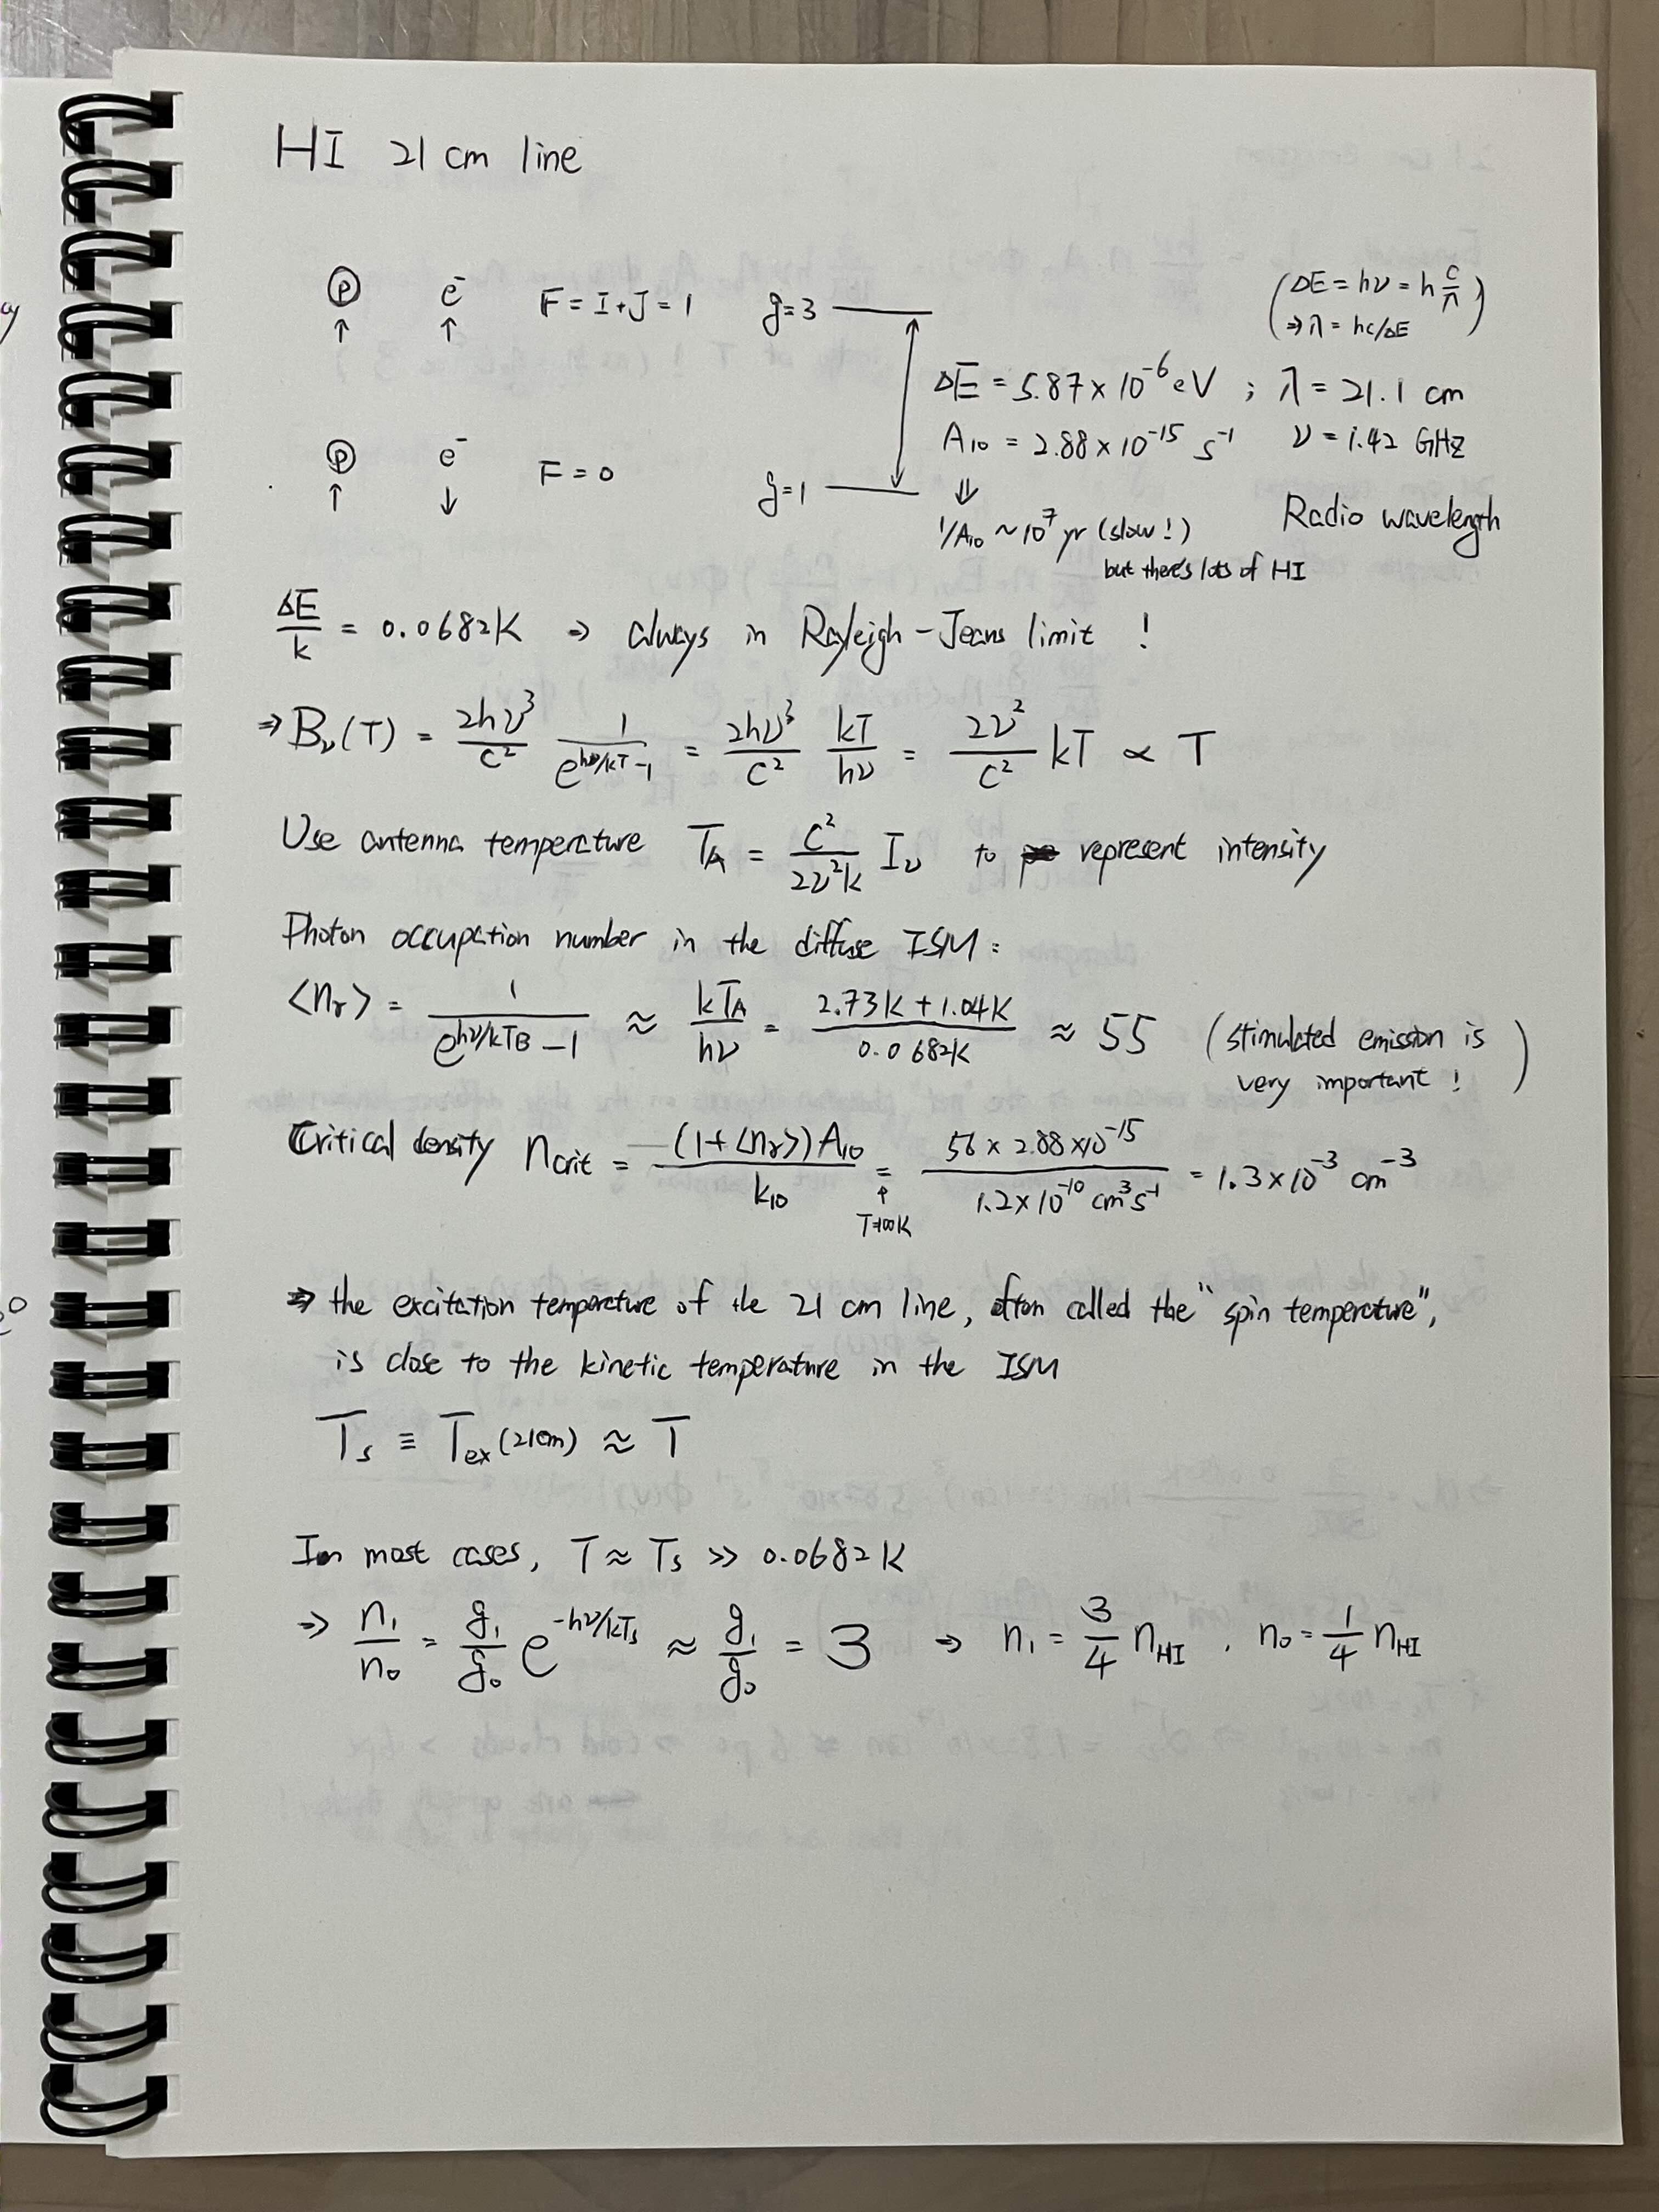 HI 21 cm line
(ΔE = hν = h c/λ
⇒ λ = hc/ΔE)
ⓟ e⁻ F = I + J = 1 g=3
↑ ↑
ΔE = 5.87 × 10⁻⁶ eV ; λ = 21.1 cm
A₁₀ = 2.88 × 10⁻¹⁵ s⁻¹ ν = 1.42 GHz
ⓟ e⁻ F = 0 g=1 ⇓
↑ ↓
1/A₁₀ ~ 10⁷ yr (slow!) Radio wavelength
but there's lots of HI
ΔE/k = 0.0682K ⇒ always in Rayleigh-Jeans limit !
⇒ Bν(T) = 2hν³/c² 1/(e^(hν/kT) -1) = 2hν³/c² kT/hν = 2ν²/c² kT ∝ T
Use antenna temperature T_A = c²/2ν²k Iν to represent intensity
Photon occupation number in the diffuse ISM :
⟨nγ⟩ = 1/(e^(hν/kTB) - 1) ≈ kT_A/hν = (2.73K + 1.04K)/0.0682K ≈ 55 (stimulated emission is
very important !)
Critical density n_crit = (1+⟨nγ⟩)A₁₀/k₁₀ = 56 × 2.88 × 10⁻¹⁵/1.2 × 10⁻¹⁰ cm³ s⁻¹ = 1.3 × 10⁻³ cm⁻³
↑
T=100K
⇒ the excitation temperature of the 21 cm line, often called the "spin temperature",
is close to the kinetic temperature in the ISM
T_s ≡ T_ex (21cm) ≈ T
In most cases, T ≈ T_s ≫ 0.0682K
⇒ n₁/n₀ = g₁/g₀ e^(-hν/kT_s) ≈ g₁/g₀ = 3 ⇒ n₁ = 3/4 n_HI , n₀ = 1/4 n_HI